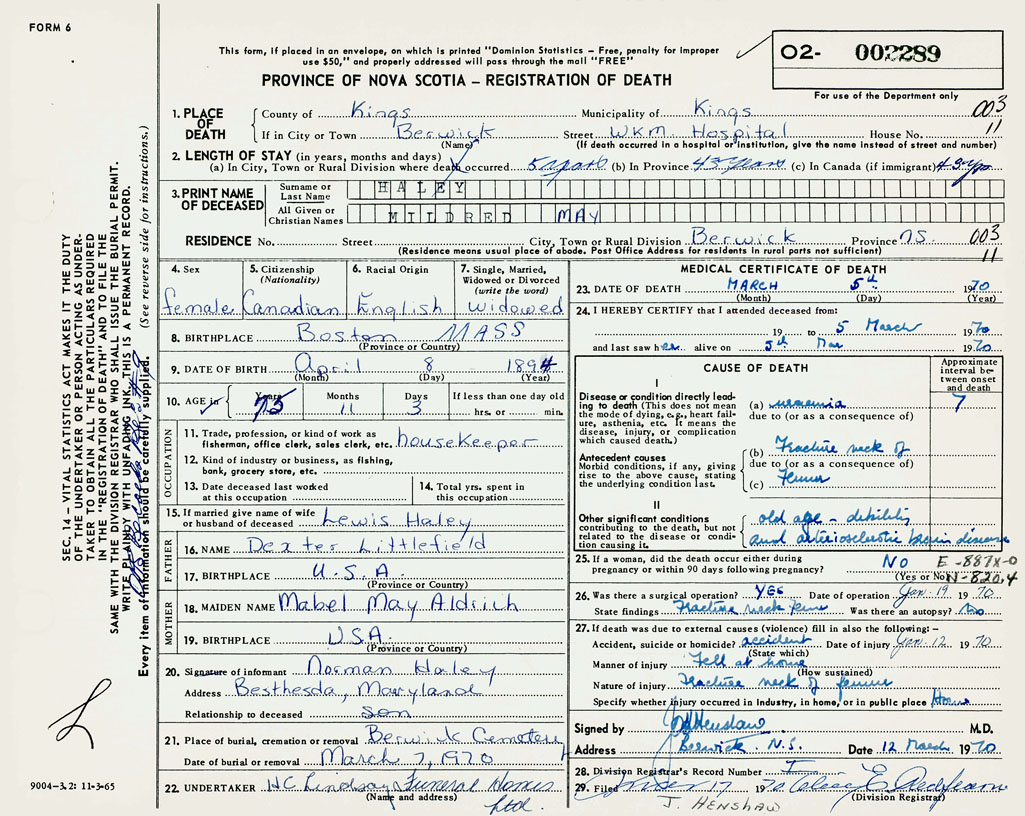 FORM 6
This form, if placed in an envelope, on which is printed "Dominion Statistics – Free, penalty for improper
use $50," and properly addressed will pass through the mail "FREE"
PROVINCE OF NOVA SCOTIA – REGISTRATION OF DEATH
O2- 002289
For use of the Department only
003
11
1. PLACE OF DEATH
County of Kings Municipality of Kings
If in City or Town Berwick Street WKM. Hospital House No.
(Name) (If death occurred in a hospital or institution, give the name instead of street and number)
2. LENGTH OF STAY (in years, months and days)
(a) In City, Town or Rural Division where death occurred 5 years (b) In Province 43 years (c) In Canada (if immigrant) 43 yrs
3. PRINT NAME OF DECEASED
Surname or Last Name HALEY
All Given or Christian Names MILDRED MAY
RESIDENCE No. Street City, Town or Rural Division Berwick Province N.S. 003
(Residence means usual place of abode. Post Office Address for residents in rural parts not sufficient) 11
4. Sex 5. Citizenship (Nationality) 6. Racial Origin 7. Single, Married, Widowed or Divorced (write the word)
female Canadian English widowed
8. BIRTHPLACE Boston MASS
(Province or Country)
9. DATE OF BIRTH April 8 1894
(Month) (Day) (Year)
10. AGE in Years Months Days If less than one day old
75 11 3 hrs. or min.
OCCUPATION
11. Trade, profession, or kind of work as
fisherman, office clerk, sales clerk, etc. housekeeper
12. Kind of industry or business, as fishing,
bank, grocery store, etc.
13. Date deceased last worked
at this occupation
14. Total yrs. spent in
this occupation
15. If married give name of wife
or husband of deceased Lewis Haley
FATHER
16. NAME Dexter Littlefield
17. BIRTHPLACE U.S.A.
(Province or Country)
MOTHER
18. MAIDEN NAME Mabel May Aldrich
19. BIRTHPLACE USA.
(Province or Country)
20. Signature of informant Norman Haley
Address Besthesda, Maryland
Relationship to deceased son
21. Place of burial, cremation or removal Berwick Cemetery
Date of burial or removal March 7, 1970
22. UNDERTAKER HC Lindsay Funeral Homes
(Name and address) Ltd.
MEDICAL CERTIFICATE OF DEATH
23. DATE OF DEATH MARCH 5th 1970
(Month) (Day) (Year)
24. I HEREBY CERTIFY that I attended deceased from:
19 to 5 March 1970
and last saw her alive on 5th Mar 1970
CAUSE OF DEATH
Approximate interval between onset and death
I
Disease or condition directly leading to death (This does not mean the mode of dying, e.g., heart failure, asthenia, etc. It means the disease, injury, or complication which caused death.)
(a) uraemia 7
due to (or as a consequence of)
Antecedent causes
Morbid conditions, if any, giving rise to the above cause, stating the underlying condition last.
(b) Fracture neck of
due to (or as a consequence of)
(c) Femur
II
Other significant conditions contributing to the death, but not related to the disease or condition causing it.
old age – debility
and arteriosclerotic brain disease
25. If a woman, did the death occur either during
pregnancy or within 90 days following pregnancy? No E-887X-0
(Yes or No) N-820.4
26. Was there a surgical operation? YES Date of operation Jan. 19 1970
State findings Fracture neck femur Was there an autopsy? No
27. If death was due to external causes (violence) fill in also the following: –
Accident, suicide or homicide? accident Date of injury Jan. 12 1970
(State which)
Manner of injury Fell at home
(How sustained)
Nature of injury Fracture neck of femur
Specify whether injury occurred in industry, in home, or in public place Home
Signed by J Henshaw M.D.
Address Berwick. N.S. Date 12 March 1970
28. Division Registrar's Record Number
29. Filed 17 1970
(Division Registrar)
J. HENSHAW
SEC. 14 – VITAL STATISTICS ACT MAKES IT THE DUTY
OF THE UNDERTAKER OR PERSON ACTING AS UNDER-
TAKER TO OBTAIN ALL THE PARTICULARS REQUIRED
IN THE "REGISTRATION OF DEATH" AND TO FILE THE
SAME WITH THE DIVISION REGISTRAR WHO SHALL ISSUE THE BURIAL PERMIT.
WRITE PLAINLY WITH UNFADING INK. THIS IS A PERMANENT RECORD.
Every item of information should be carefully supplied. (See reverse side for instructions.)
9004-3.2: 11-3-65